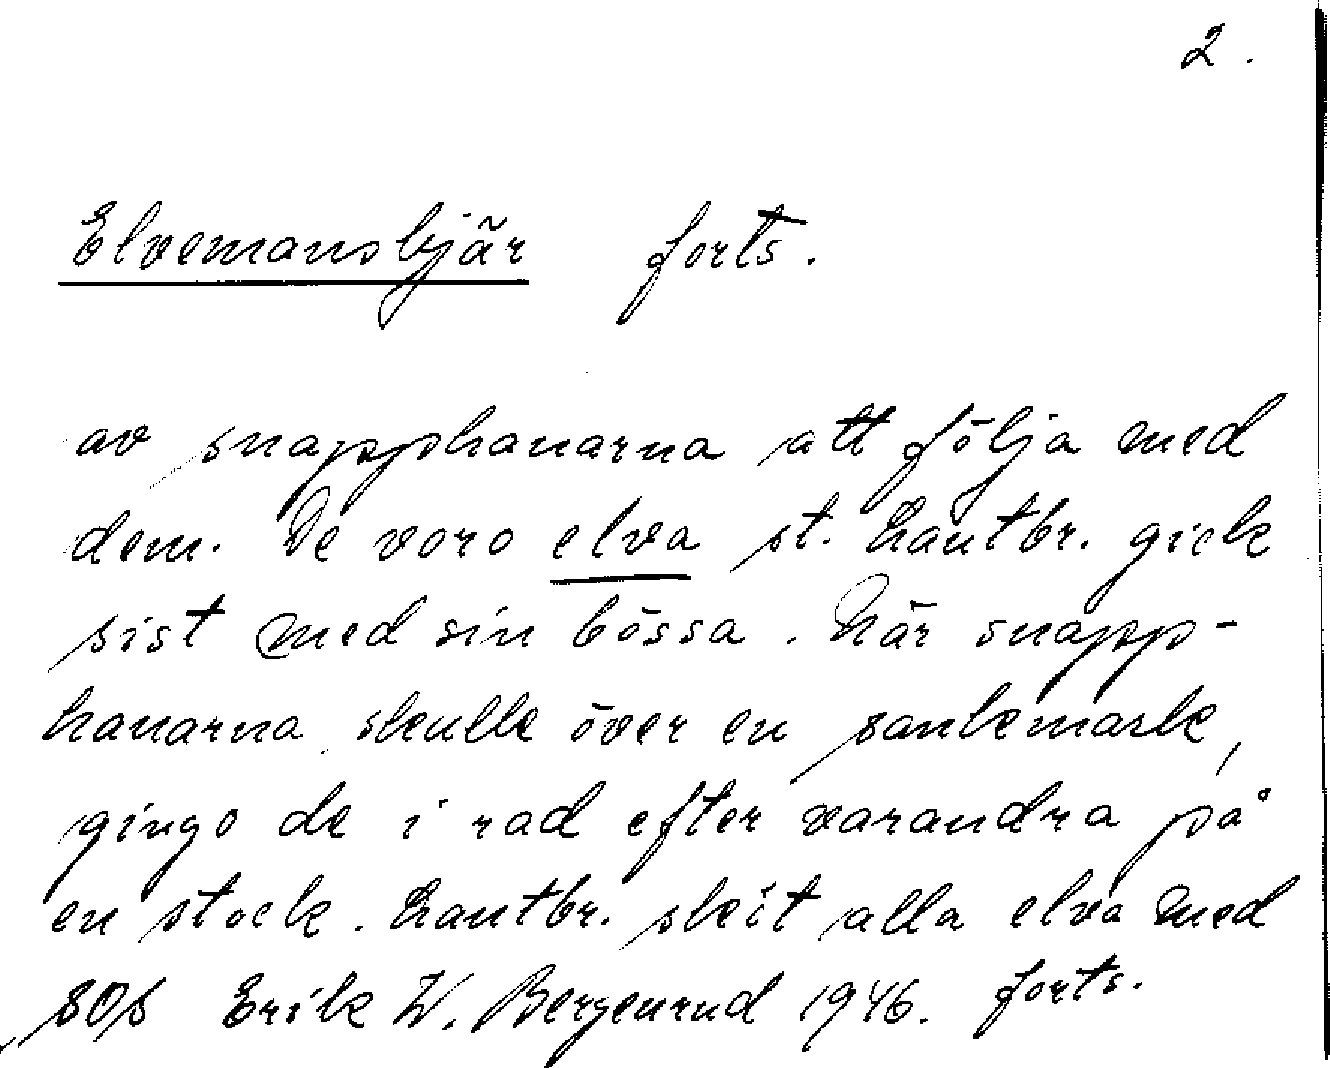 2.
Elvemansbjär forts.
av snapphanarna att följa med
dem. De voro elva st. Lantbr. gick
sist med sin bössa. När snapp-
hanarna skulle över en sankmark,
gingo de i rad efter varandra på
en stock. Lantbr. sköt alla elva med
SOS Erik W. Bergenrud 1946. forts.